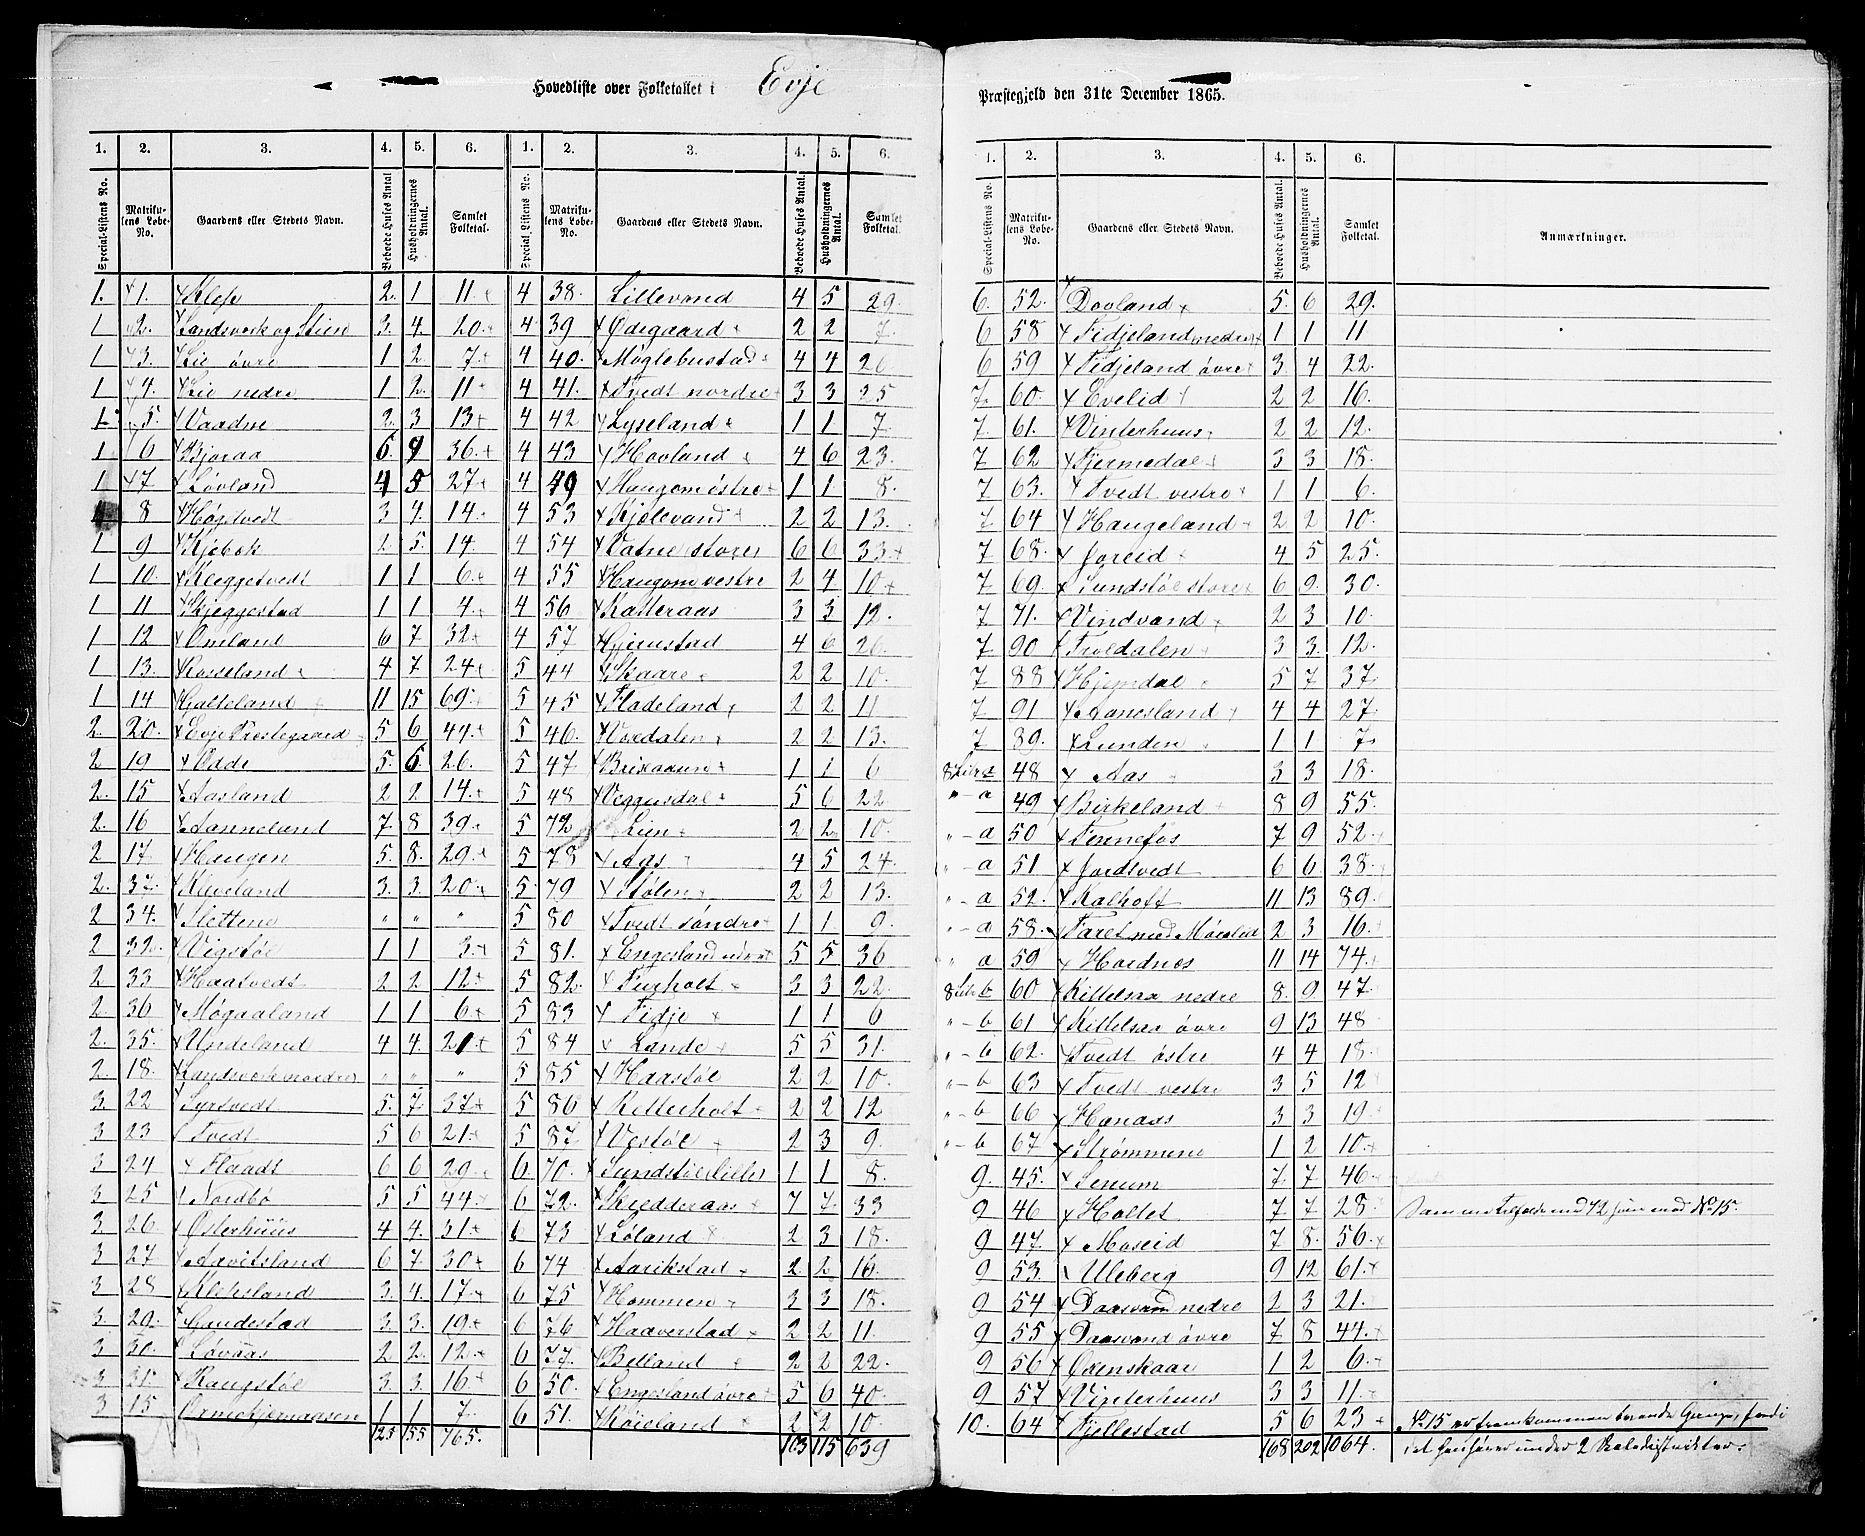 Hovedliste over Folketallet i Evje
Præstegjeld den 31te December 1865.
1. 2. 3. 4. 5. 6. 1. 2. 3. 4. 5. 6.
Special-Listens No. Matrikulens Løbe-No. Gaardens eller Stedets Navn. Beboede Huses Antal Husholdningernes Antal. Samlet Folketal. Special-Listens No. Matrikulens Løbe-No. Gaardens eller Stedets Navn. Beboede Huses Antal. Husholdningernes Antal. Samlet Folketal.
1. 1. Klep 2. 1 11 4 38. Lillevand 4 5 29.
1 2. Landsverk og Stien 3. 4. 20. 4 39 Ødegaard 2 2 7.
1 3. Lie øvre 1 2. 7. 4 40. Møglebustad 4 4 26
1 4. Lie nedre 1 2. 11 4 41. Tvedt nordre 3 3 25
1. 5. Vaadne 2. 3 13 4 42 Lyseland 1 1 7.
1 6 Bjoraa 6. 9 36. 4 43 Hovland 4 6 23.
1. 7. Løvland 4 5 27 4 49 Haugom østre 1 1 8.
8 Høgtvedt 3 4. 14 4 53 Kjølevand 2 2 13.
1 9 Kjebok 2 5. 14 4 54 Vatne store 6 6 33
1 10. Kleggetvedt 1 1 6. 4 55 Haugom vestre 2 4 10
1 11 Skjeggestad 1 1 4. 4 56 Katteraas 3 3 12.
1 12 Omland 6 7 32 4 57 Gjerustad 4 6 26
1 13. Rosseland 4 7 24 5 44 Skaare 2 2 10.
1 14 Galteland 11 15 69 5 45 Fladeland 2 2 11
2. 20. Evje Prestegaard 5 6 44. 5 46. Vordalen 2 2 13.
2 19 Odde 5. 6. 26. 5 47 Brixaasen 1 1 6
2. 15 Aasland 2 2 14. 5 48 Veggusdal 5 6 22
2. 16 Aanneland 7 8 39. 5 72 Lien 2 2 10.
2 17 Haugen 5. 8. 29. 5 78 Aas 4 5 24
2. 37. Kaveland 3. 3. 20. 5 79 Stølen 2 2 13.
2 34. Slettene " " " 5 80 Tvedt søndre 1 1 9.
2 32. Vigstøl 1 1 3. 5 81. Engesland nedre 5 5 36
2 33 Haatvedt 2 2 12 5 82. Furholt 3 3 22.
2 36 Møgaaland 1 1 6. 5 83 Fidje 1 1 6
2. 35. Undeland 4 4. 21. 5 84 Lande 5 5 31.
2. 18. Landsverk nordre " " " 5 85 Haastøl 2 2 10.
3. 22 Syrtvedt 5. 7. 37. 5 86 Ketterholt 2 2 12
3 23 Tvedt 5 6 21. 5 87 Vestøl 2 3 9.
3 24 Flaadt 6 6 29. 6. 70. Sundstøl lille 1 1 8.
3 25 Nordbø 5 5 44. 6 72. Skredderaas 7 7. 33
3 26 Østerhuus 4 4. 31. 6 73 Løland 2 3 18.
3 27 Aavitsland 6 7. 30 6 74 Aarikstad 2 2 16.
3 28 Klepsland 3. 4. 17. 6 75 Hommen 3 3 18.
3 29. Gaudestad 3. 3. 19. 6 76 Haaverstad 2 2 11.
3 30. Løvaas 2 2. 12. 6 77. Belland 2 2 22.
3 31. Kaugstøl 3. 3. 16. 6 50. Engesland øvre 5 6 40.
3 15 Ormekjernaasen 1 1 7. 6 51. Røieland 2 2 10.
123 155 765. 103 115 639
1. 2. 3. 4. 5. 6.
Special-Listens No. Matrikulens Løbe-No. Gaardens eller Stedets Navn. Beboede Huses Antal. Husholdningernes Antal. Samlet Folketal. Anmærkninger.
6. 52. Dovland 5. 6 29.
6 58 Fidjeland nedre 1 1 11
6 59 Fidjeland øvre 3 4 22.
7. 60. Evelid 2 2 16.
7. 61. Vinterhuus 2 2 12.
7 62 Fjermedal 3 3 18.
7. 63. Tvedt vestre 1 1 6.
7 64 Haugeland 2 2 10.
7. 68. Joreid 4 5 25.
7 69. Sundstøl store 6 9. 30.
7 71. Vindvand 2 3 10.
7 90 Troldalen 3 3. 12.
7 88 Hjemdal 5 7 37.
7 91 Aanesland 4 4 27.
7 89. Lunden 1 1 7.
8 Litr a 48 Aas 3 3 18.
" - a 49 Birkeland 8 9 55.
" - a 50 Fennefos 7 9 52.
" - a 51 Jordtvedt 6 6 38.
" - a 52. Kalhoft 11 13 89.
" - a 58. Faret med Møralid 2 3 16.
" a 59 Hordnes 11 14 74.
8 Litr b 60 Kittelsaa nedre 8. 9 47.
" - b 61 Kittelsaa øvre 9 13 48
" - b 62. Tvedt østre 4 4 18.
" - b 63 Tvedt vestre 3 5 12
" - b 66 Hanaas 3 3 19
" - b 67 Strømmene 1 2 10.
9. 45. Senum 7 7 46
9 46 Holtet 7 7 28
9 47. Moseid 7 8. 56
9 53. Uleberg 9 12 61.
9 54 Daasvand nedre 2 3 21.
9 55 Daasvand øvre 7 8 44.
9 56 Oxenskaar 1 2 6.
9 57 Vinterhuus 3 3 11.
10. 64 Fjellestad 5 6 23 No 15 er fremkommen to Gange, fordi
168 202 1064. det henhører under 2 Skoledistrikter.